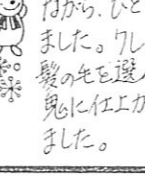 ながら、ひと
ました。クレ
髪の毛を選
鬼に仕上が
ました。